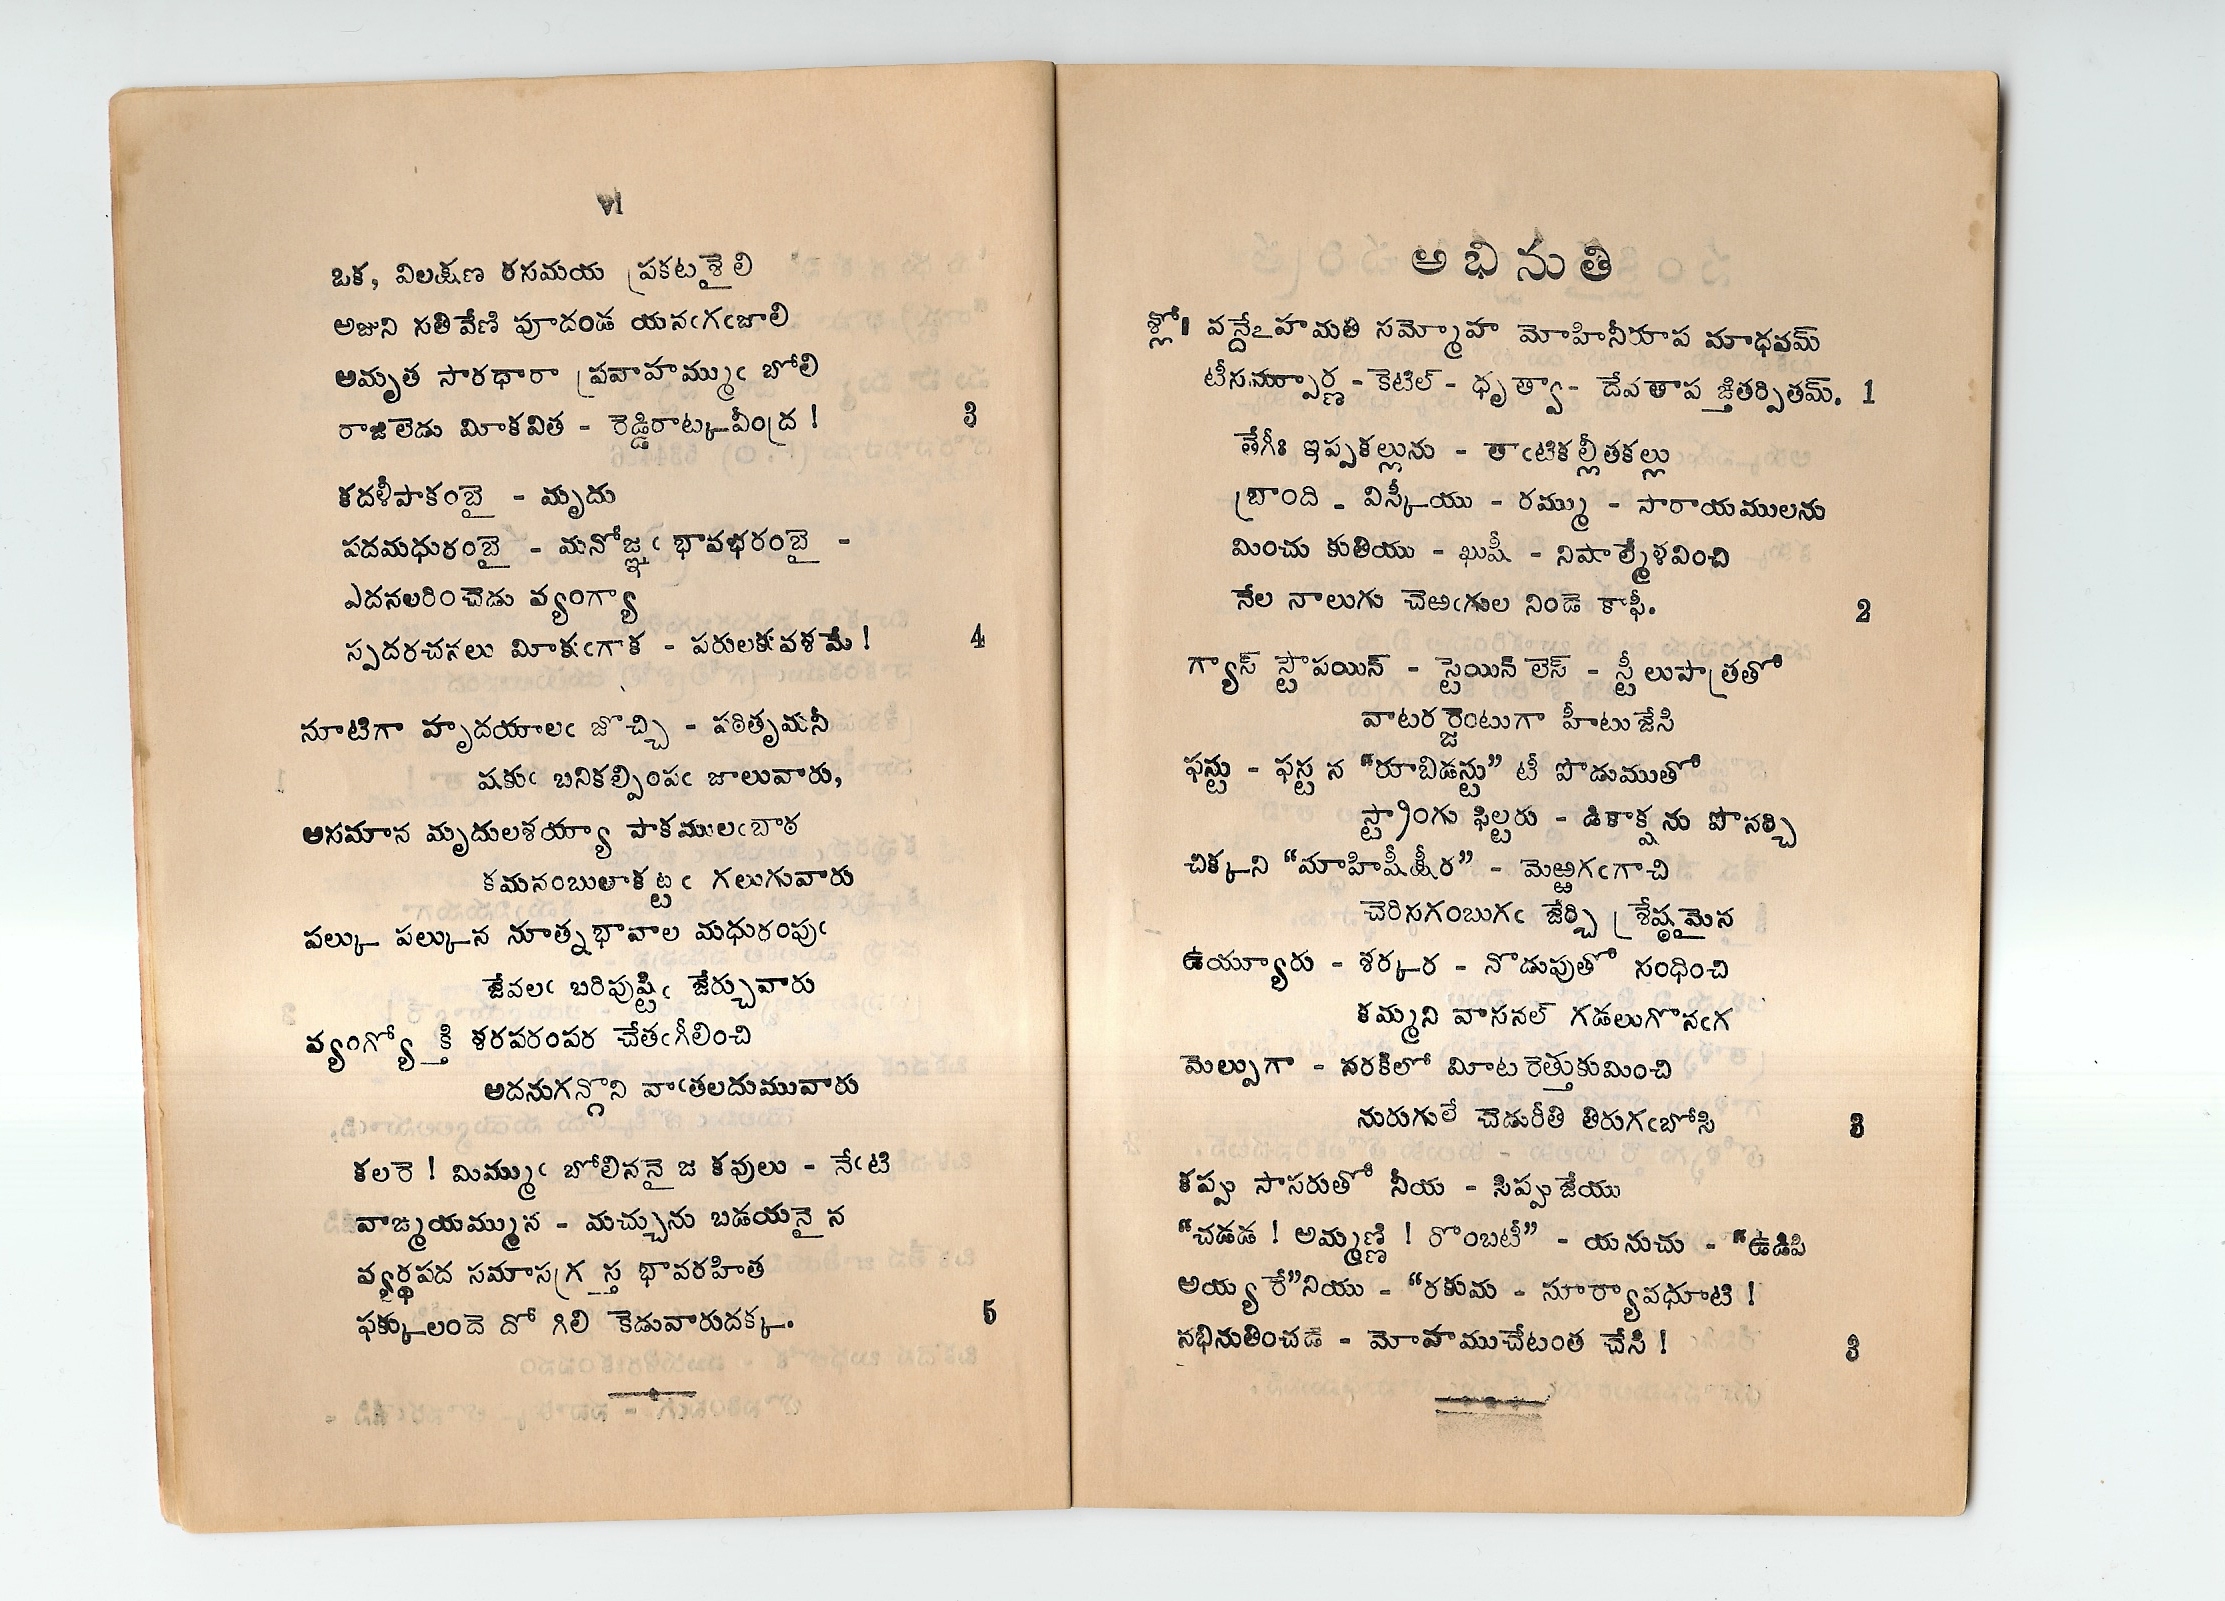 VI
ఒక, విలక్షణ రసమయ ప్రకటశైలి
అజుని సతివేణి పూదండ యనఁగఁజాలి
అమృత సారథారా ప్రవాహమ్ముఁ బోలి
రాజిలెడు మీకవిత - రెడ్డిరాట్కవీంద్ర ! 3
కదళీపాకంబై - మృదు
పదమధురంబై - మనోజ్ఞఁ భావభరంబై -
ఎదనలరించెడు వ్యంగ్యా
స్పదరచనలు మీకుఁగాక - పరులకువశమే ! 4
నూటిగా హృదయాలఁ జొచ్చి - పఠితృమనీ
షకుఁ బనికల్పింపఁ జాలువారు,
అసమాన మృదులశయ్యా పాకములఁబాఠ
కమనంబులాకట్టఁ గలుగువారు
పల్కు పల్కున నూత్నభావాల మధురంపుఁ
జేవలఁ బరిపుష్టిఁ జేర్చువారు
వ్యంగ్యోక్తి శరపరంపర చేతఁగీలించి
అదనుగన్గొని వాఁతలదుమువారు
కలరె ! మిమ్ముఁ బోలిననైజ కవులు - నేఁటి
వాఙ్మయమ్మున - మచ్చును బడయనైన
వ్యర్థపద సమాసగ్రస్త భావరహిత
ఫక్కులందెదో గిలి కెడువారుదక్క. 5
అభినుతి
శ్లో॥ వన్దేఽహమతి సమ్మోహ మోహినీరూప మాధవమ్
టీసమ్పూర్ణ - కెటిల్ - ధృత్వా - దేవతాప ఙ్తితర్పితమ్. 1
తేగీః ఇప్పకల్లును - తాఁటికల్లీతకల్లు
బ్రాంది - విస్కీయు - రమ్ము - సారాయములను
మించు కుతియు - ఖుషీ - నిషాల్మేళవించి
నేల నాలుగు చెఱఁగుల నిండె కాఫీ. 2
గ్యాస్ స్టౌపయిన్ - స్టెయిన్ లెస్ - స్టీలుపాత్రతో
వాటరర్జెంటుగా హీటుజేసి
ఫస్టు - ఫస్టన “రూబిడస్టు” టీ పొడుముతో
స్ట్రాంగు ఫిల్టరు - డికాక్షను పొనర్చి
చిక్కని “మాహిషీక్షీర” - మెఱ్ఱగఁగాచి
చెరిసగంబుగఁ జేర్చి శ్రేష్ఠమైన
ఉయ్యూరు - శర్కర - నొడుపుతో సంధించి
కమ్మని వాసనల్ గడలుగొనఁగ
మెల్పుగా - నరకిలో మీట రెత్తుకుమించి
నురుగులే చెడురీతి తిరుగఁబోసి 3
కప్పు సాసరుతో నీయ - సిప్పుజేయు
“చడడ ! అమ్మణ్ణి ! రొంబటీ” - యనుచు - “ఉడిపి
అయ్యరే”నియు - “రకుమ - సూర్యావధూటి !
నభినుతించడె - మోహముచేటంత చేసి ! 3